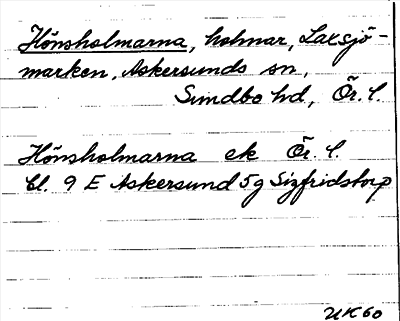 Hönsholmarna, holmar, Laxsjö-
marken, Askersunds sn,
Sundbo hd, Ör. l.
Hönsholmarna ek Ör. l.
bl. 9 E Askersund 5g Sizfridstorp
UK 60